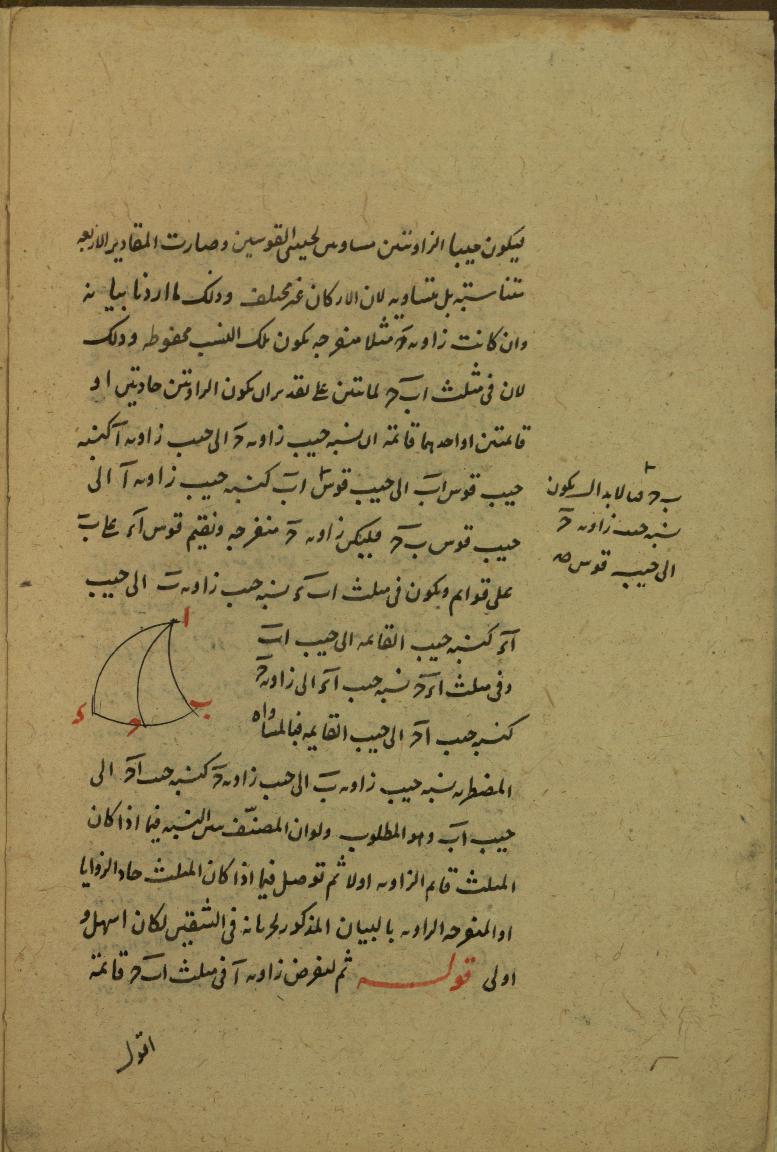 فيكون جيبا الزاويتين مساويين لجيبى القوسين وصارت المقادير الاربعة
متناسبة بل متساوية لان الاركان غير مختلف وذلك ما اردنا بيانه
وان كانت زاوية حَ مثلا منفرجة يكون تلك النسب محفوظه وذلك
لان فى مثلث ابَ حَ لما تبين على تقدير ان يكون الزاويتين حادتين او
قائمتين او احديهما قائمة ان نسبه جيب زاوية حَ الى جيب زاوية آ كنسبه
جيب قوس ابَ الى جيب قوس ابَ كنسبه جيب زاوية آ الى
جيب قوس بَ حَ فليكن زاوية حَ منفرجه ونقيم قوس اءَ على بَ
على قوايم ويكون فى مثلث ابَ ءَ نسبه جيب زاوية بَ الى جيب
اءَ كنسبه جيب القائمه الى جيب ابَ
وفى مثلث اءَ حَ نسبه جيب اءَ الى زاوية حَ
كنسبه جيب احَ الى جيب القايمه فبالمساواه
المضطربه نسبه جيب زاوية بَ الى جيب زاوية حَ كنسبه جيب احَ الى
جيب ابَ وهو المطلوب ولو ان المصنّف بين النسبه فيما اذا كان
المثلث قايم الزاوية اولا ثم توصل فيما اذا كان المثلث حاد الزوايا
او المنفرجه الزاوية بالبيان المذكور لجريانه فى الشقين لكان اسهل و
اولى قولـــه ثم لنفرض زاوية آ فى مثلث ابَ حَ قائمة
اقول
بَ حَ
نسبه جيب زاوية حَ
الى جيب قوس
ا
ب
ح
ء